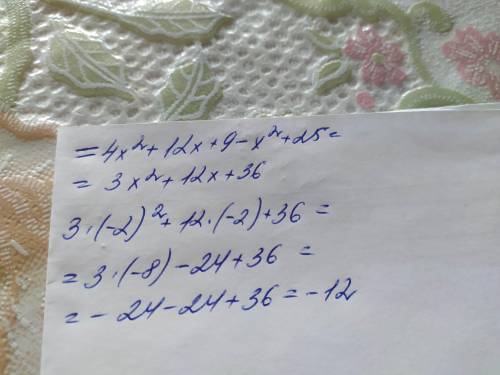 = 4x² + 12x + 9 - x² + 25 =
= 3x² + 12x + 36
3 · (-2)² + 12 · (-2) + 36 =
= 3 · (-8) - 24 + 36 =
= - 24 - 24 + 36 = - 12